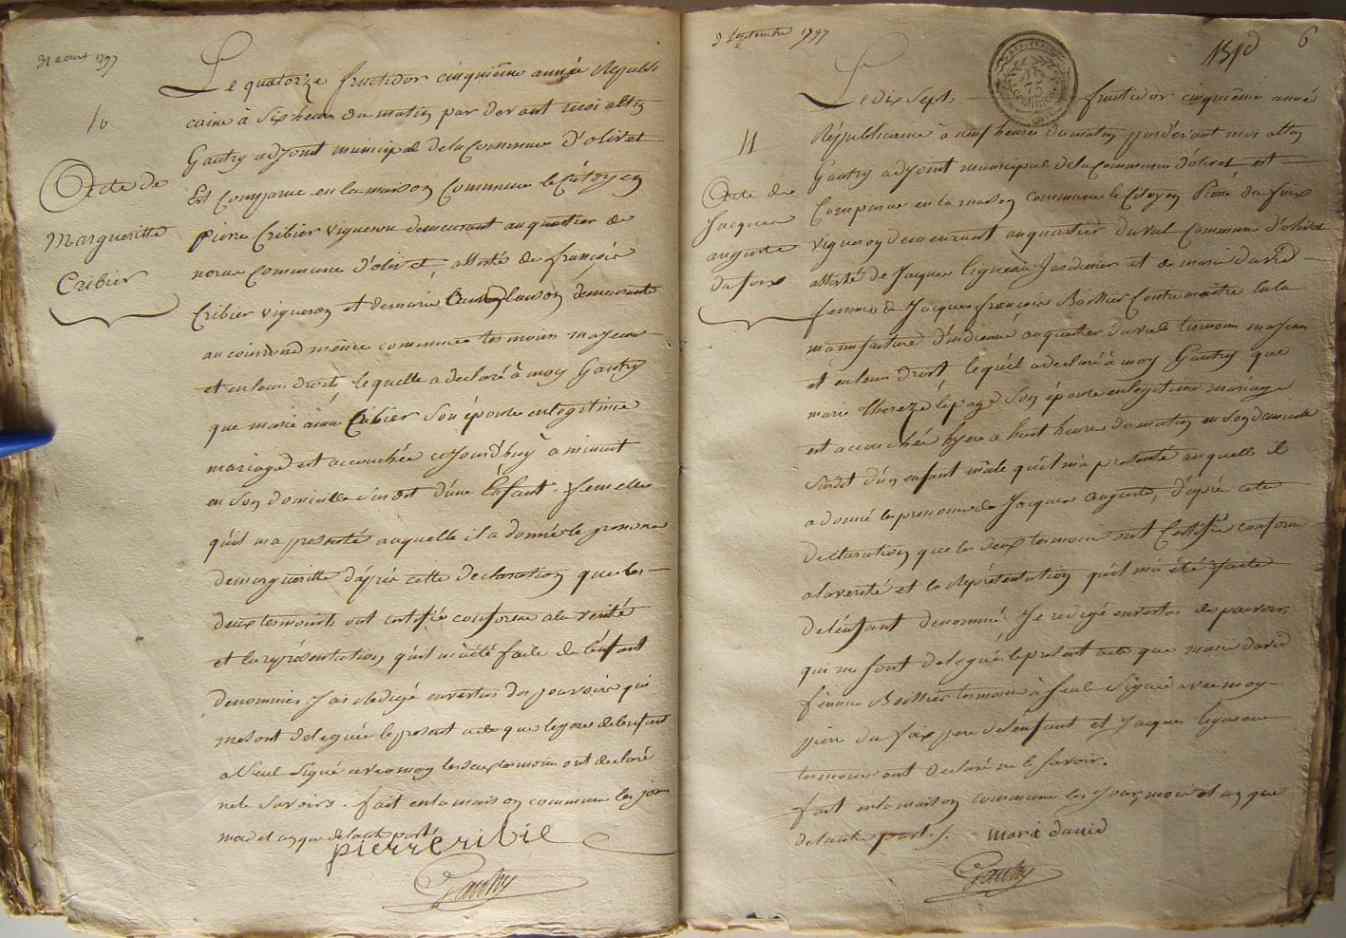 31 aout 1797
10
Acte de
Margueritte
Cribier
Le quatorze fructidor cinquième année Républi
caine à six heures du matin par devant moi
Gautry adjoint municipal de la Commune d'olivet
Est Comparue en la maison Commune le Citoyen
pierre Cribier vigneron demeurant au quartier de
Commune d'olivet, assisté de françois
Cribier vigneron et de marie demeurante
même commune temoins majeurs
et en leurs droits, lequelle a declaré à moy Gautry
que marie Cribier son épouse en legitime
mariage est accouchée cejourd'huy à minuit
en son domicille d'une Enfant femelle
qu'il ma presenté auquelle il a donné le prenom
de margueritte d'après cette declaration que les
deux temoins ont certifié conforme a la verité
et la représentation qu'il m'a été faite de l'enfant
denommée J'ai rédigé en vertu des pouvoirs qui
me sont delegués le present acte que le pere de l'enfant
a seul signé avec moy les deux temoins ont declaré
ne le savoir. fait en la maison commune les jour
mois et an que de l'autre part.
pierre cribie
Gautry
3 Septembre 1797
6
11
Acte de
Jacques
auguste
du faix
Le dix Sept fructidor cinquième année
Républicaine à neuf heures du matin par devant moi
Gautry adjoint municipal de la Commune d'olivet est
Comparue en la maison commune le Citoyen Pierre du faix
vigneron demeurant au quartier du val Commune d'olivet
assisté de Jacques Jardinier et de marie david
femme de Jacques françois Contre maitre en la
manufacture d'indienne au quartier du val temoins majeurs
et en leurs droit lequel a declaré à moy Gautry que
marie thereze lepage son épouse en legitime mariage
est accouchée hyere a huit heures du matin en son domicille
Susdit d'un enfant mâle qu'il m'a presenté auquelle il
a donné les prenoms de Jacques auguste, d'après cette
declaration que les deux temoins ont Certifié conforme
a la verité et la représentation qu'il m'a été faite
de l'enfant denommé Je redigé en vertu des pouvoirs
qui me sont delegués le present acte que marie david
femme temoin à seul signé avec moy
pierre du faix pere de l'enfant et Jacques
temoins ont declaré ne le savoir.
fait en la maison commune les jour mois et an que
de l'autre part. marie david
Gautry